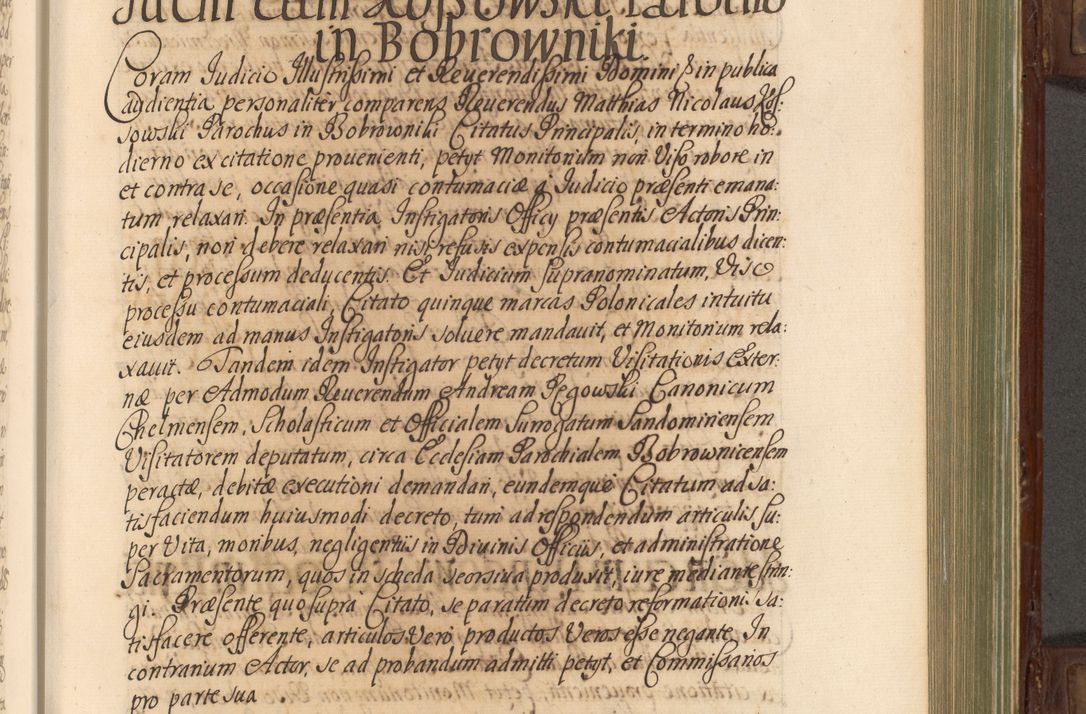 Judicii cum Kossowski Parocho
in Bobrowniki.
Coram Judicio Illustrissimi et Reuerendissimi Domini & in publica
audientia personaliter comparens Reuerendus Matthias Nicolaus Kos:
sowski Parochus in Bobrowniki Citatus Principalis, in termino ho:
dierno ex citatione prouenienti, petyt Monitorium non Viso robore in
et contra se, occasione quasi contumaciæ à Judicio præsenti emana:
tum relaxari. In præsentia Instigatoris Officy præsentis Actoris Prin:
cipalis, non debere relaxari nisi refusis expensis contumacialibus dicen:
tis, et processum deducentis. Et Judicium supranominatum, Viso
processu contumaciali, Citato quinque marcas Polonicales intuitu
eiusdem ad manus Instigatoris soluere mandauit, et Monitorium rela:
xauit. Tandem idem Instigator petyt decretum Visitationis Exter:
næ per Admodum Reuerendum Andream Pegowski Canonicum
Chelmensem, Scholasticum et Officialem Surrogatum Sandominensem
Visitatorem deputatum, circa Ecclesiam Parochialem Bobrownicensem
peractæ, debitæ executioni demandari, eundemque Citatum ad sa:
tisfaciendum huiusmodi decreto, tum ad respondendum articulis su:
per Vita, moribus, negligentiis in Diuinis Officiis, et administratione
Sacramentorum, quos in scheda seorsiua produxit, iure mediante strin:
gi. Præsente quo supra Citato, se paratum decreto reformationis sa:
tisfacere offerente, articulos Vero productos Veros esse negante. In
contrarium Actor, se ad probandum admitti petyt, et Commissarios
pro parte sua